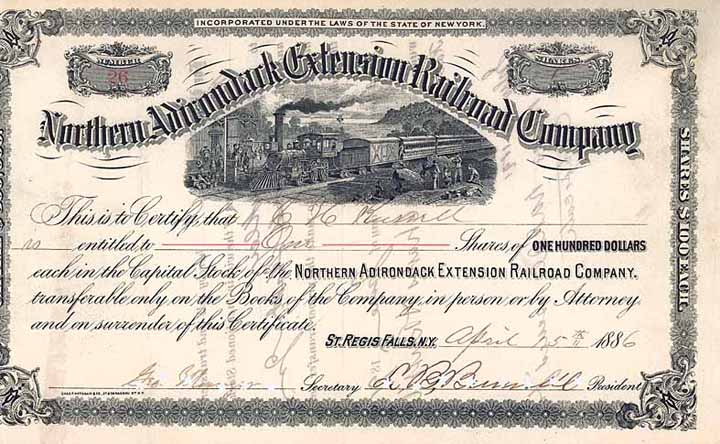 INCORPORATED UNDER THE LAWS OF THE STATE OF NEW YORK.
NUMBER
26
SHARES
Northern Adirondack Extension Railroad Company
This is to Certify that C H
is entitled to One Shares of ONE HUNDRED DOLLARS
each in the Capital Stock of the NORTHERN ADIRONDACK EXTENSION RAILROAD COMPANY.
transferable only on the Books of the Company, in person or by Attorney
and on surrender of this Certificate.
ST. REGIS FALLS, N.Y. April 1886
Secretary President
SHARES $100 EACH.